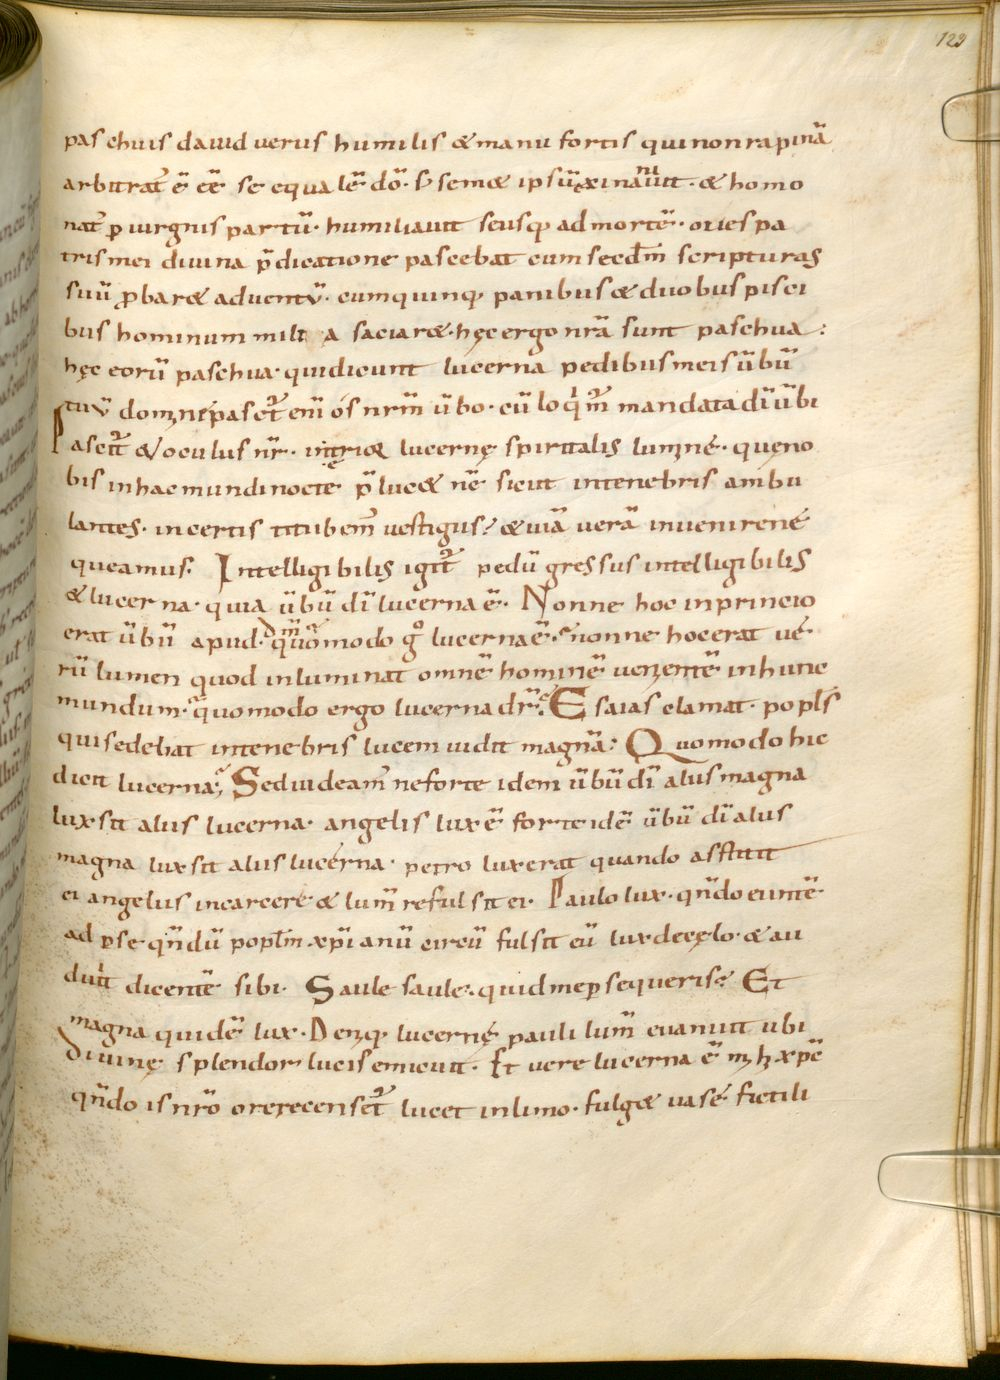 129
paschuis dauid uerus humilis & manu fortis qui non rapinā
arbitrat̄ ē eē se equalē dō. s; sem& ipsū exinaniuit. & homo
nat̄ p uirginis partū. humiliauit seusq; ad mortē. oues pa
tris mei diuina p̄dicatione pascebat cum secdm̄ scripturas
suū pbar& aduentū. cum quinq; panibus & duobus pisci
bus hominum milia saciar&. hęc ergo nrā sunt paschua:
hęc eorū paschua. qui dicunt lucerna pedibus meis ūbū
tuū domine pascit̄ enī os nrm̄ ūbo. cū loqimr̄ mandata dī ūbi
Pascit̄ & oculus nr̄. intęrioę lucernę spiritalis lumine. quę no
bis in hac mundi nocte p̄luc& nē sicut in tenebris ambu
lantes. incertis titubem̄ uestigiis? & uiā uerā inuenire ne
queamus. Intelligibilis igit̄ pedū gressus intelligibilis
& lucerna. quia ūbū dī lucerna ē. Nonne hoc in principio
erat ūbū apud dm̄. quōmodo g° lucerna ē. nonne hoc erat ue
rū lumen quod inluminat omnē hominē uenientē in hunc
mundum. quomodo ergo lucerna dr̄. Esaias clamat. popls
qui sedebat in tenebris lucem uidit magnā: Quomodo hic
dicit lucerna; Sed uideam̄ ne forte idem ūbū dī aliis magna
lux sit aliis lucerna. angelis lux ē forte idē ūbū dī aliis
magna lux sit aliis lucerna. petro lux erat quando astitit
ei angelus in carcere. & lum̄ refulsit ei. Paulo lux. qn̄do euntē
ad pse qn̄dū poplm̄ xp̄ianū circū fulsit eū lux de cęlo. & au
diuit dicentē sibi. Saule saule. quid me psequeris? Et
magna quidē lux. Deniq; lucernę pauli lum̄ euanuit ubi
diuinę splendor lucis emicuit. Et uere lucerna ē m̄ h xp̄c
qn̄do is nrō ore recenset̄ lucet in limo. fulg& uase fictili